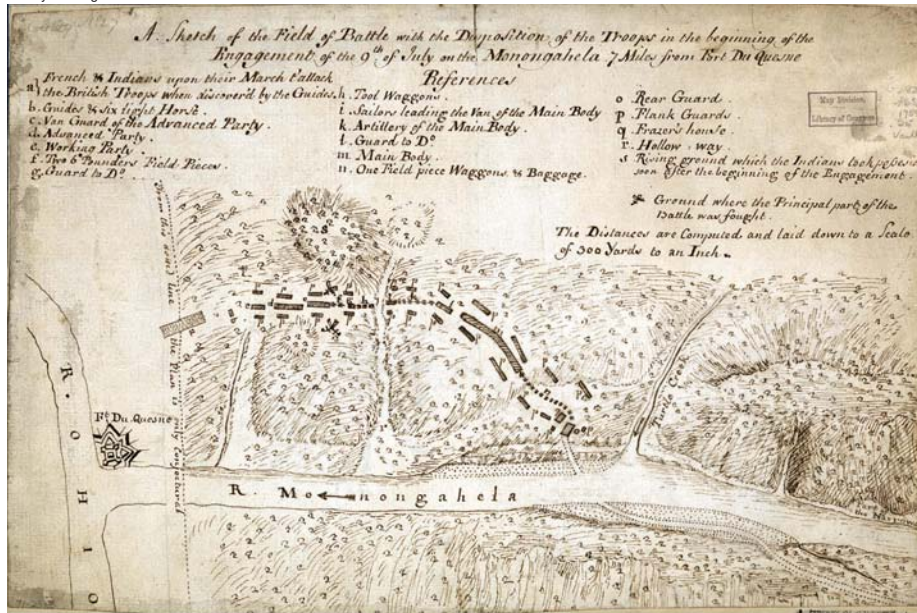 A Sketch of the Field of Battle with the Disposition of the Troops in the beginning of the
Engagement of the 9th of July on the Monongahela 7 Miles from Fort Du Quesne
References
a French & Indians upon their March t'attack
the British Troops when discover'd by the Guides.
b. Guides & six light Horse.
c. Van Guard of the Advanced Party.
d. Advanced Party.
e. Working Party.
f. Two 6 Pounders Field Pieces.
g. Guard to Do.
h. Tool Waggons.
i. Sailors leading the Van of the Main Body.
k. Artillery of the Main Body.
l. Guard to Do.
m. Main Body.
n. One Field piece Waggons & Baggage.
o Rear Guard.
p Flank Guards.
q Frazer's house.
r. Hollow way.
s Rising ground which the Indians took
soon after the beginning of the Engagement.
Ground where the Principal part of the
Battle was fought.
The Distances are Computed and laid down to a Scale
of 300 Yards to an Inch.
Map Division,
Library of Congress
From this dotted line the Plan is only Conjectural
Ft. Du Quesne
R. OHIO
R. Monongahela
Turtle Creek